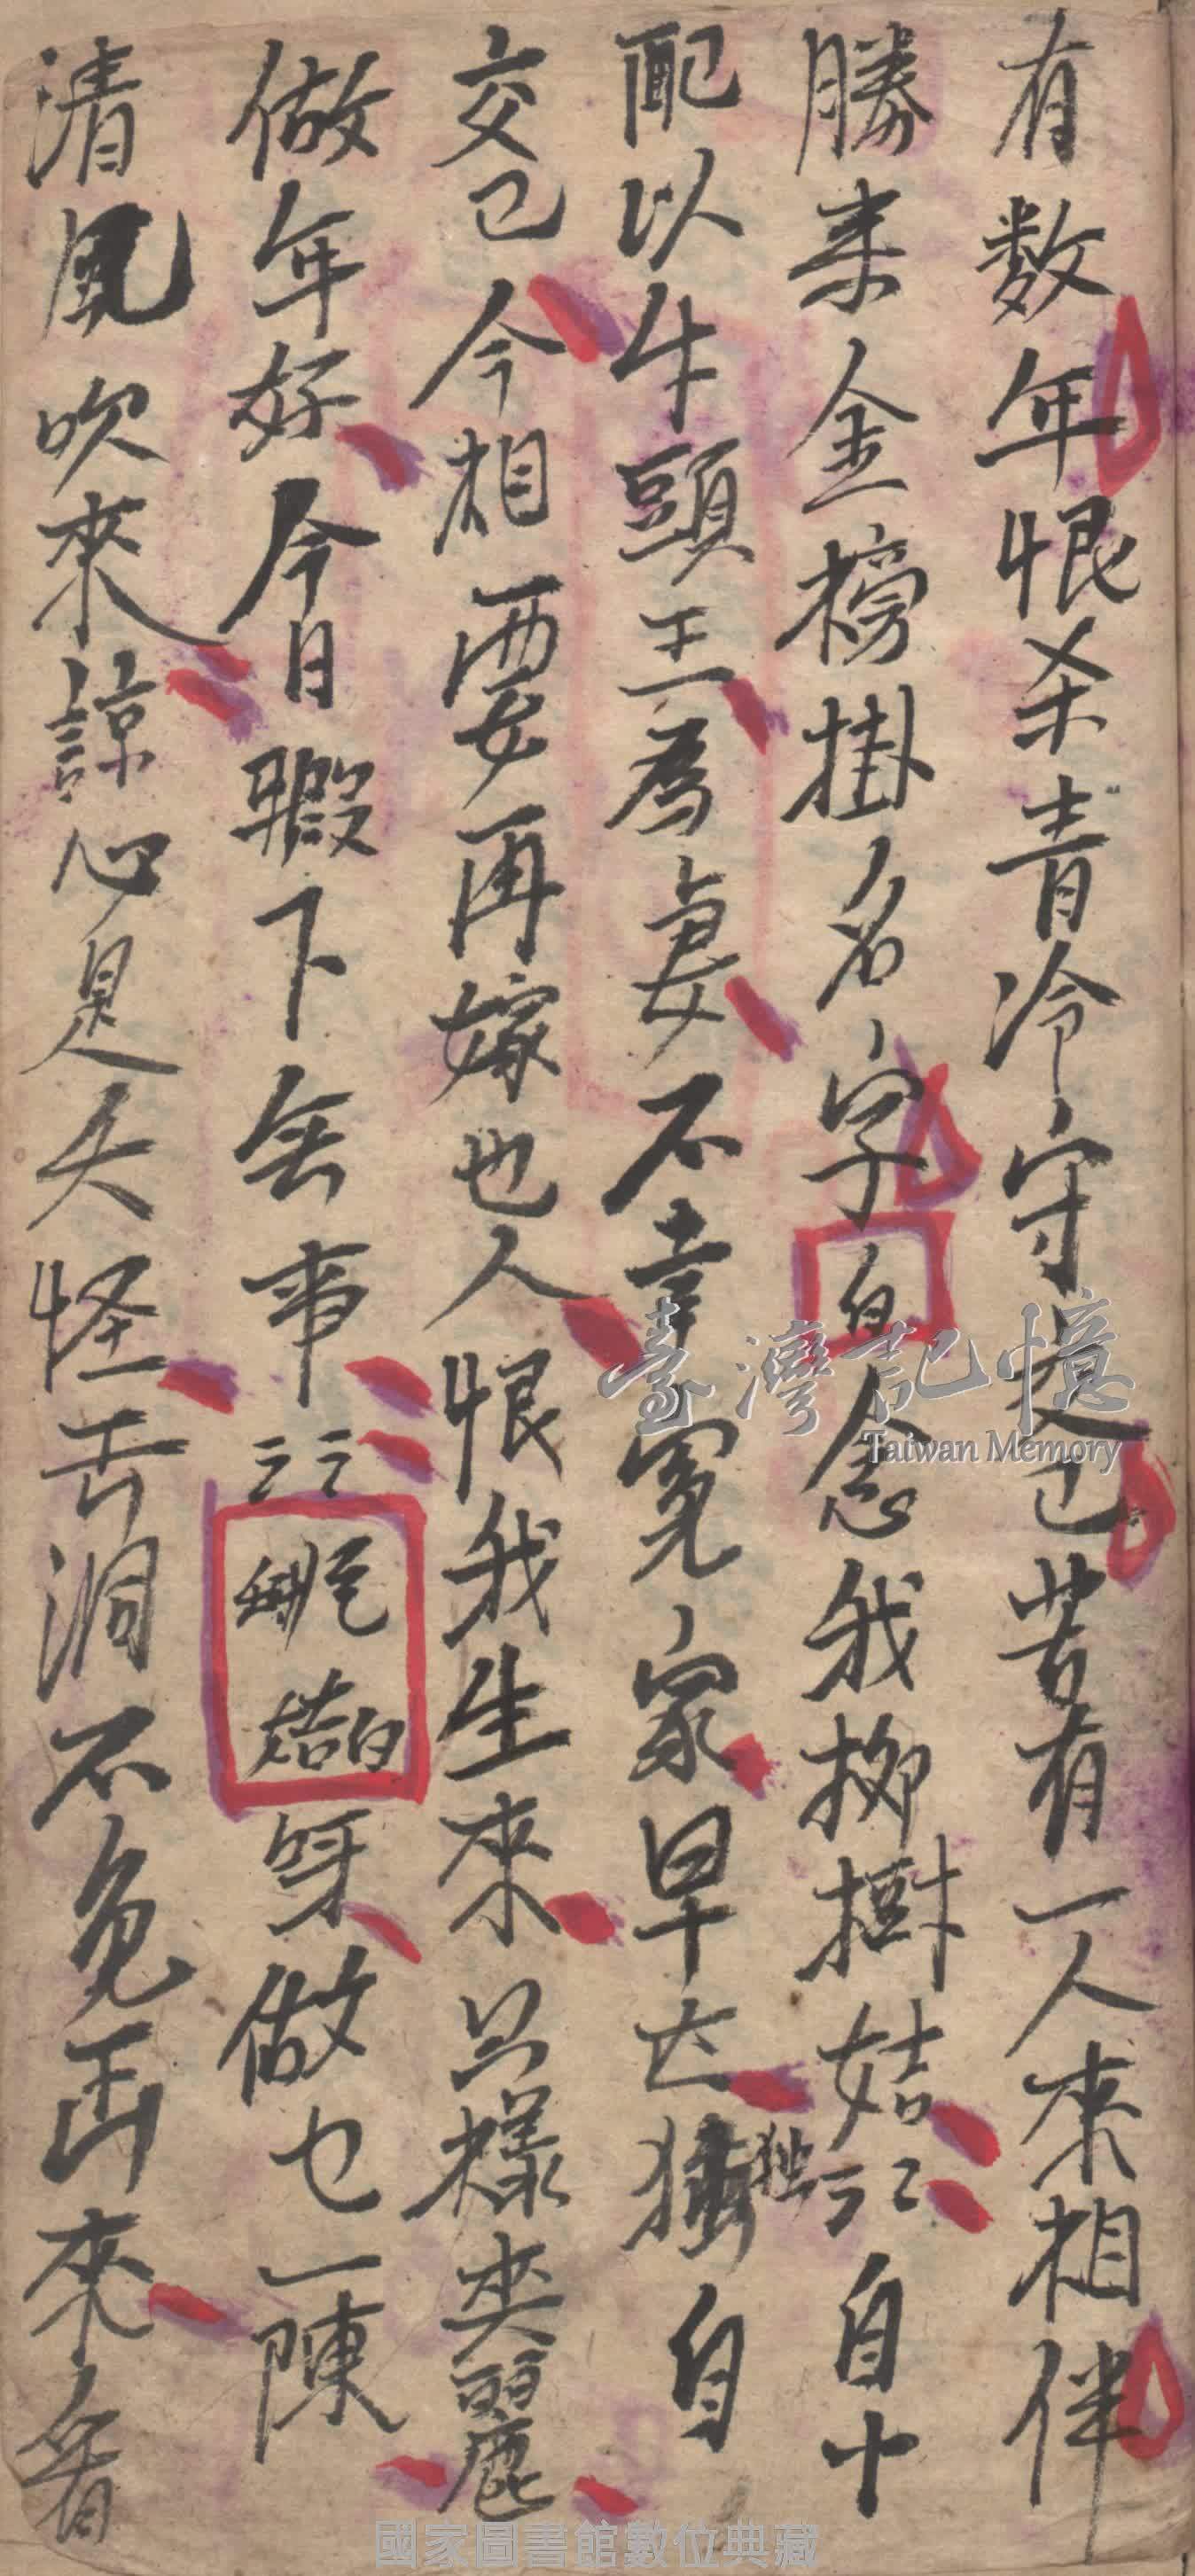 有数年恨杀青冷守 已苦有一人來相伴
勝来金榜掛名字白念我柳樹姞〻〻自十
配以牛頭王為妻不幸冤家早亡獨独自
交已今相要再嫁也人恨我生來只樣美麗
做年好今日暇下無事〻〻 姞白呀做乜一陳
清風吹來諒心是夭怪去洞不免出來看
臺灣記憶
Taiwan Memory
國家圖書館數位典藏